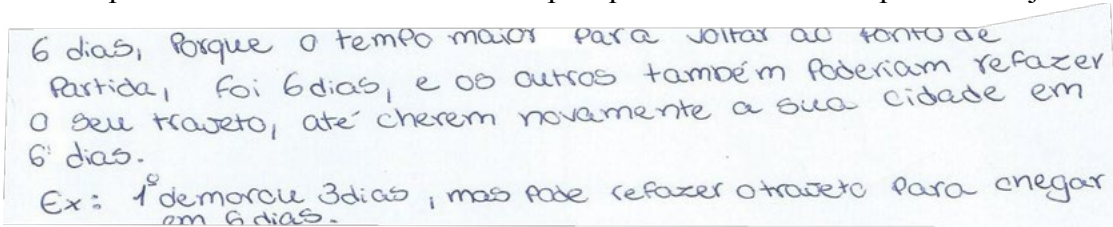 6 dias, Porque o tempo maior Para voltar ao Ponto de
Partida, foi 6 dias, e os outros também Poderiam refazer
o seu traveto, até cherem novamente a sua cidade em
6 dias.
Ex: 1º demorou 3 dias, mas Pode refazer o traveto Para chegar
em 6 dias.